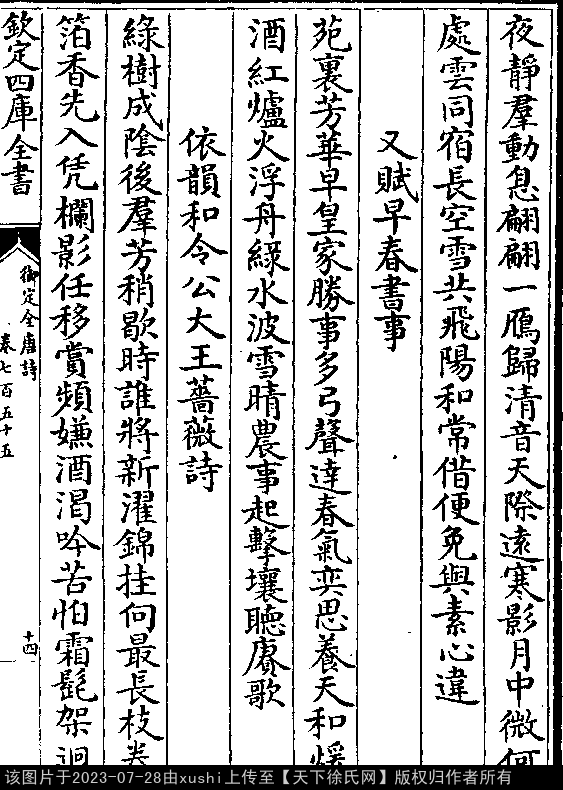 夜靜羣動息翩翩一鴈歸清音天際遠寒影月中微何
處雲同宿長空雪共飛陽和常借便免與素心違
又賦早春書事
苑裏芳華早皇家勝事多弓聲達春氣奕思養天和煖
酒紅爐火浮舟綠水波雪晴農事起擊壤聽賡歌
依韻和令公大王薔薇詩
綠樹成陰後羣芳稍歇時誰將新濯錦挂向最長枝卷
箔香先入凭欄影任移賞頻嫌酒渴吟苦怕霜髭架迥
欽定四庫全書
御定全唐詩
卷七百五十五
十四
该图片于2023-07-28由xushi上传至【天下徐氏网】版权归作者所有